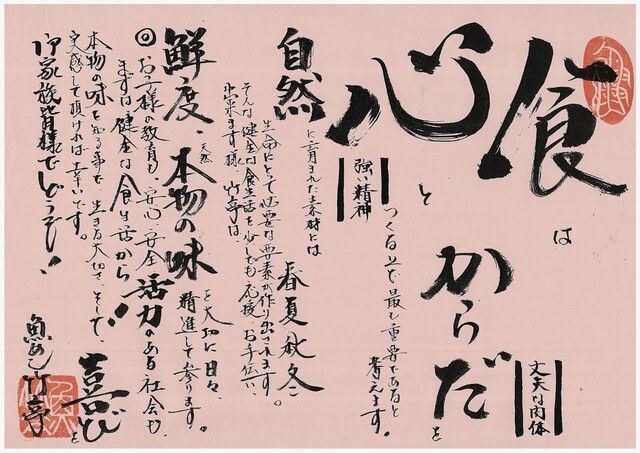 食は
心とからだを
丈夫な肉体
強い精神
つくる上で最も重要であると
考えます。
自然に育まれた素材には
春夏秋冬
生命にとって必要な要素が作り出されます。
そんな健全な食生活を少しでも応援、お手伝い、
出来ます様 竹亭は
鮮度、天然本物の味を大切に日々、
精進して参ります。
◎お子様の教育も、安心、安全 活力のある社会も、
まずは健全な食生活から!
本物の味を知る事で、生きる大切さ、そして、喜びを
実感して頂ければ幸いです。
御家族皆様でどうぞ!
竹亭